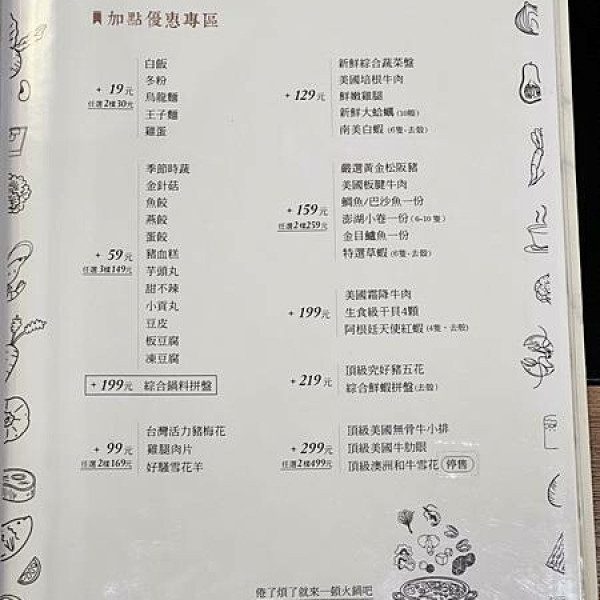 加點優惠專區
+ 19元
任選2樣30元
白飯
冬粉
烏龍麵
王子麵
雞蛋
+ 59元
任選3樣149元
季節時蔬
金針菇
魚餃
燕餃
蛋餃
豬血糕
芋頭丸
甜不辣
小貢丸
豆皮
板豆腐
凍豆腐
+ 199元 綜合鍋料拼盤
+ 99元
任選2樣169元
台灣活力豬梅花
雞腿肉片
好騷雪花羊
+ 129元
新鮮綜合蔬菜盤
美國培根牛肉
鮮嫩雞腿
新鮮大蛤蠣 (10顆)
南美白蝦 (6隻,去殼)
+ 159元
任選2樣259元
嚴選黃金松阪豬
美國板腱牛肉
鯛魚/巴沙魚一份
澎湖小卷一份 (6-10隻)
金目鱸魚一份
特選草蝦 (6隻,去殼)
+ 199元
美國霜降牛肉
生食級干貝4顆
阿根廷天使紅蝦 (4隻、去殼)
+ 219元
頂級究好豬五花
綜合鮮蝦拼盤(去殼)
+ 299元
任選2樣499元
頂級美國無骨牛小排
頂級美國牛肋眼
頂級澳洲和牛雪花 停售
倦了煩了就來一頓火鍋吧